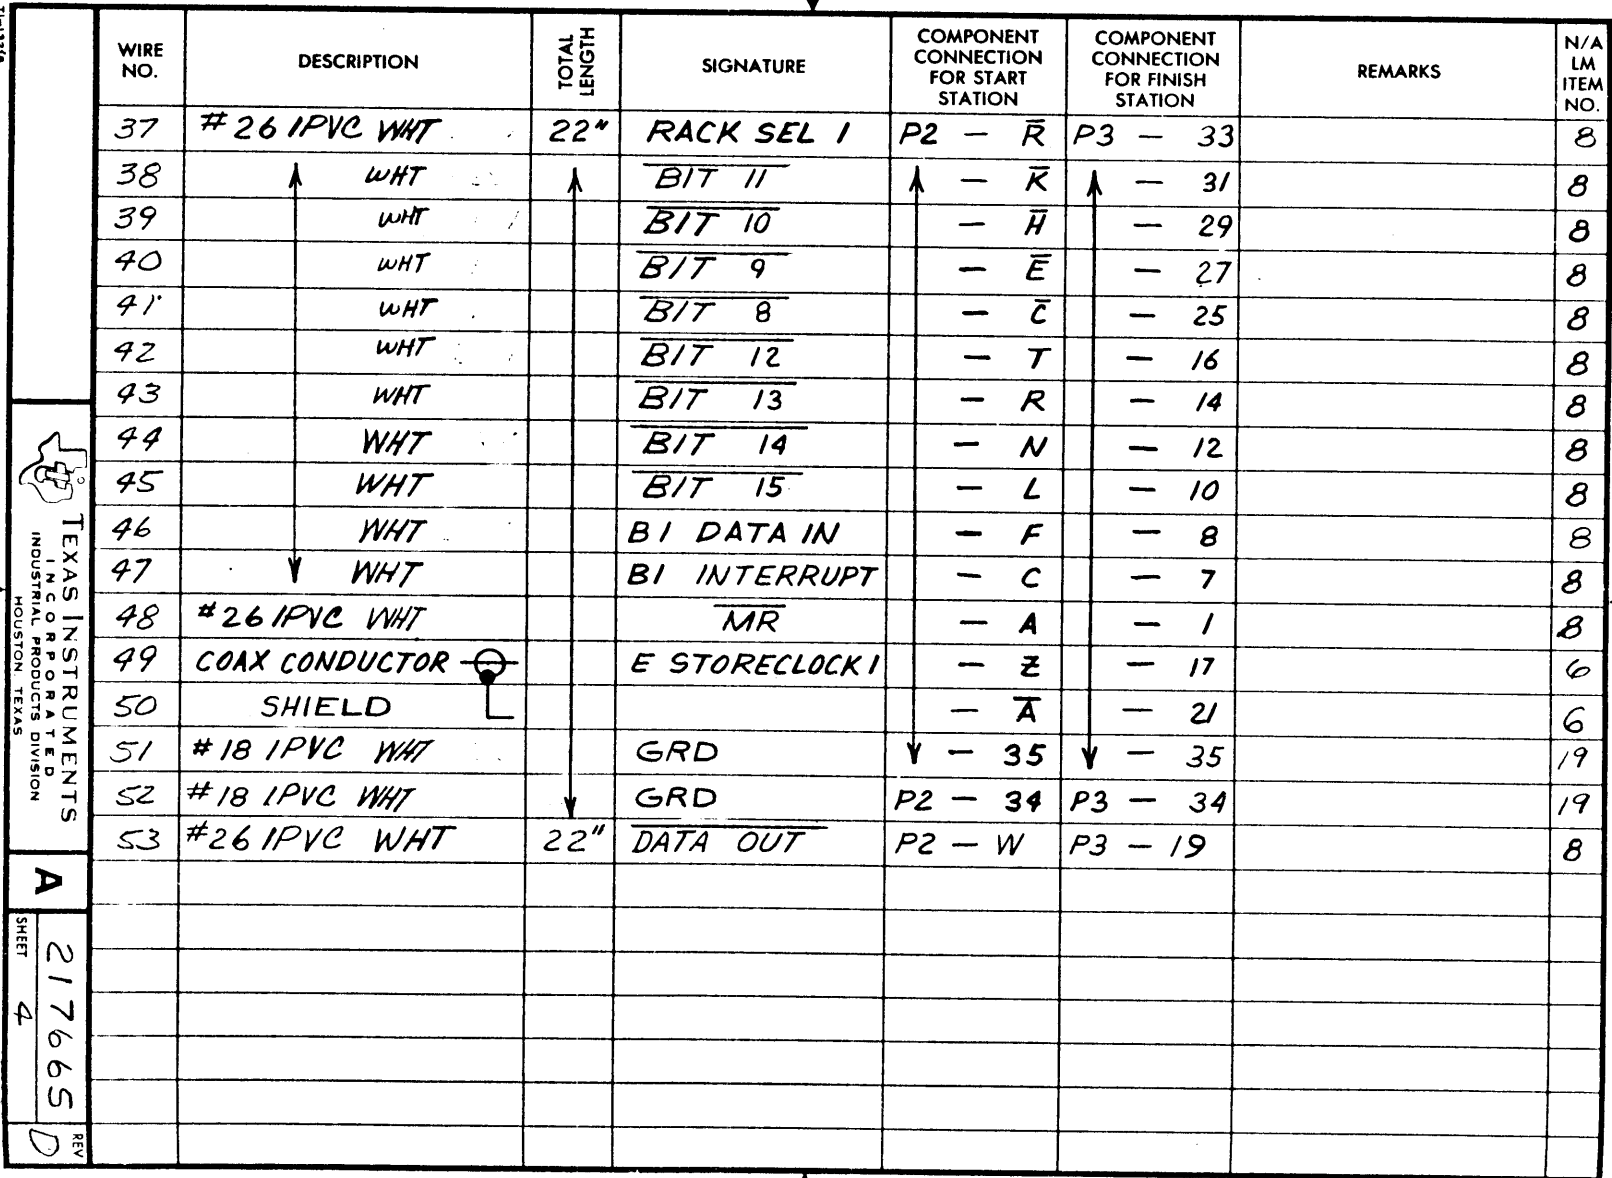 WIRE NO. DESCRIPTION TOTAL LENGTH SIGNATURE COMPONENT CONNECTION FOR START STATION COMPONENT CONNECTION FOR FINISH STATION REMARKS N/A LM ITEM NO.
37 #26 1PVC WHT 22" RACK SEL 1 P2 — R̅ P3 — 33 8
38 WHT B̅I̅T̅ 1̅1̅ — K̅ — 31 8
39 WHT B̅I̅T̅ 1̅0̅ — H̅ — 29 8
40 WHT B̅I̅T̅ 9̅ — E̅ — 27 8
41 WHT B̅I̅T̅ 8̅ — C̅ — 25 8
42 WHT B̅I̅T̅ 1̅2̅ — T — 16 8
43 WHT B̅I̅T̅ 1̅3̅ — R — 14 8
44 WHT B̅I̅T̅ 1̅4̅ — N — 12 8
45 WHT B̅I̅T̅ 1̅5̅ — L — 10 8
46 WHT BI DATA IN — F — 8 8
47 WHT BI INTERRUPT — C — 7 8
48 #26 1PVC WHT M̅R̅ — A — 1 8
49 COAX CONDUCTOR E STORECLOCK 1 — Z — 17 6
50 SHIELD — A̅ — 21 6
51 #18 1PVC WHT GRD — 35 — 35 19
52 #18 1PVC WHT GRD P2 — 34 P3 — 34 19
53 #26 1PVC WHT 22" D̅A̅T̅A̅ O̅U̅T̅ P2 — W P3 — 19 8
TEXAS INSTRUMENTS
INCORPORATED
INDUSTRIAL PRODUCTS DIVISION
HOUSTON, TEXAS
A
217665
SHEET 4
REV D